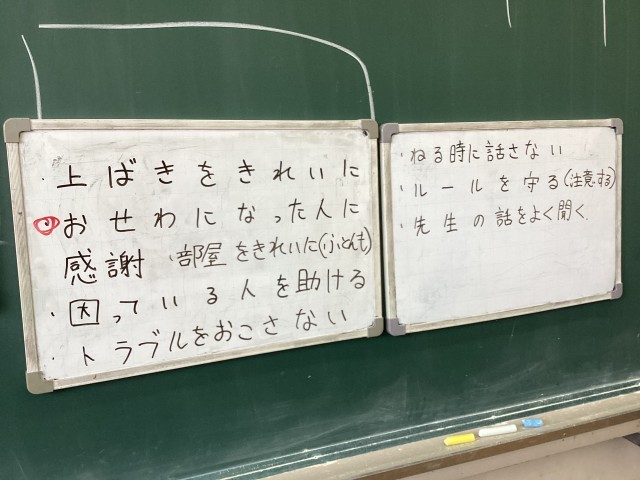 ・上ばきをきれいに
・おせわになった人に
感謝 ・部屋をきれいに(ふとんも)
・困っている人を助ける
・トラブルをおこさない
・ねる時に話さない
・ルールを守る(注意する)
・先生の話をよく聞く。